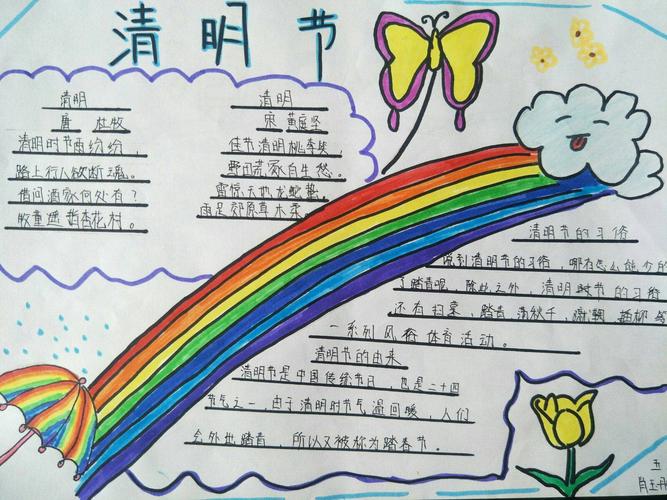 清明节
清明
唐 杜牧
清明时节雨纷纷,
路上行人欲断魂。
借问酒家何处有?
牧童遥指杏花村。
清明
宋 黄庭坚
佳节清明桃李笑,
野田荒冢自生愁。
雷惊天地龙蛇蛰,
雨足郊原草木柔。
清明节的习俗
说到清明节的习俗,哪有怎么能少的
了踏青呢,除此之外,清明时节的习俗
还有扫墓,踏青 荡秋千,蹴鞠 插柳
一系列风俗体育活动。
清明节的由来
清明节是中国传统节日,也是二十四
节气之一,由于清明时节气温回暖,人们
会外出踏青,所以又被称为踏春节。
五
肖玉